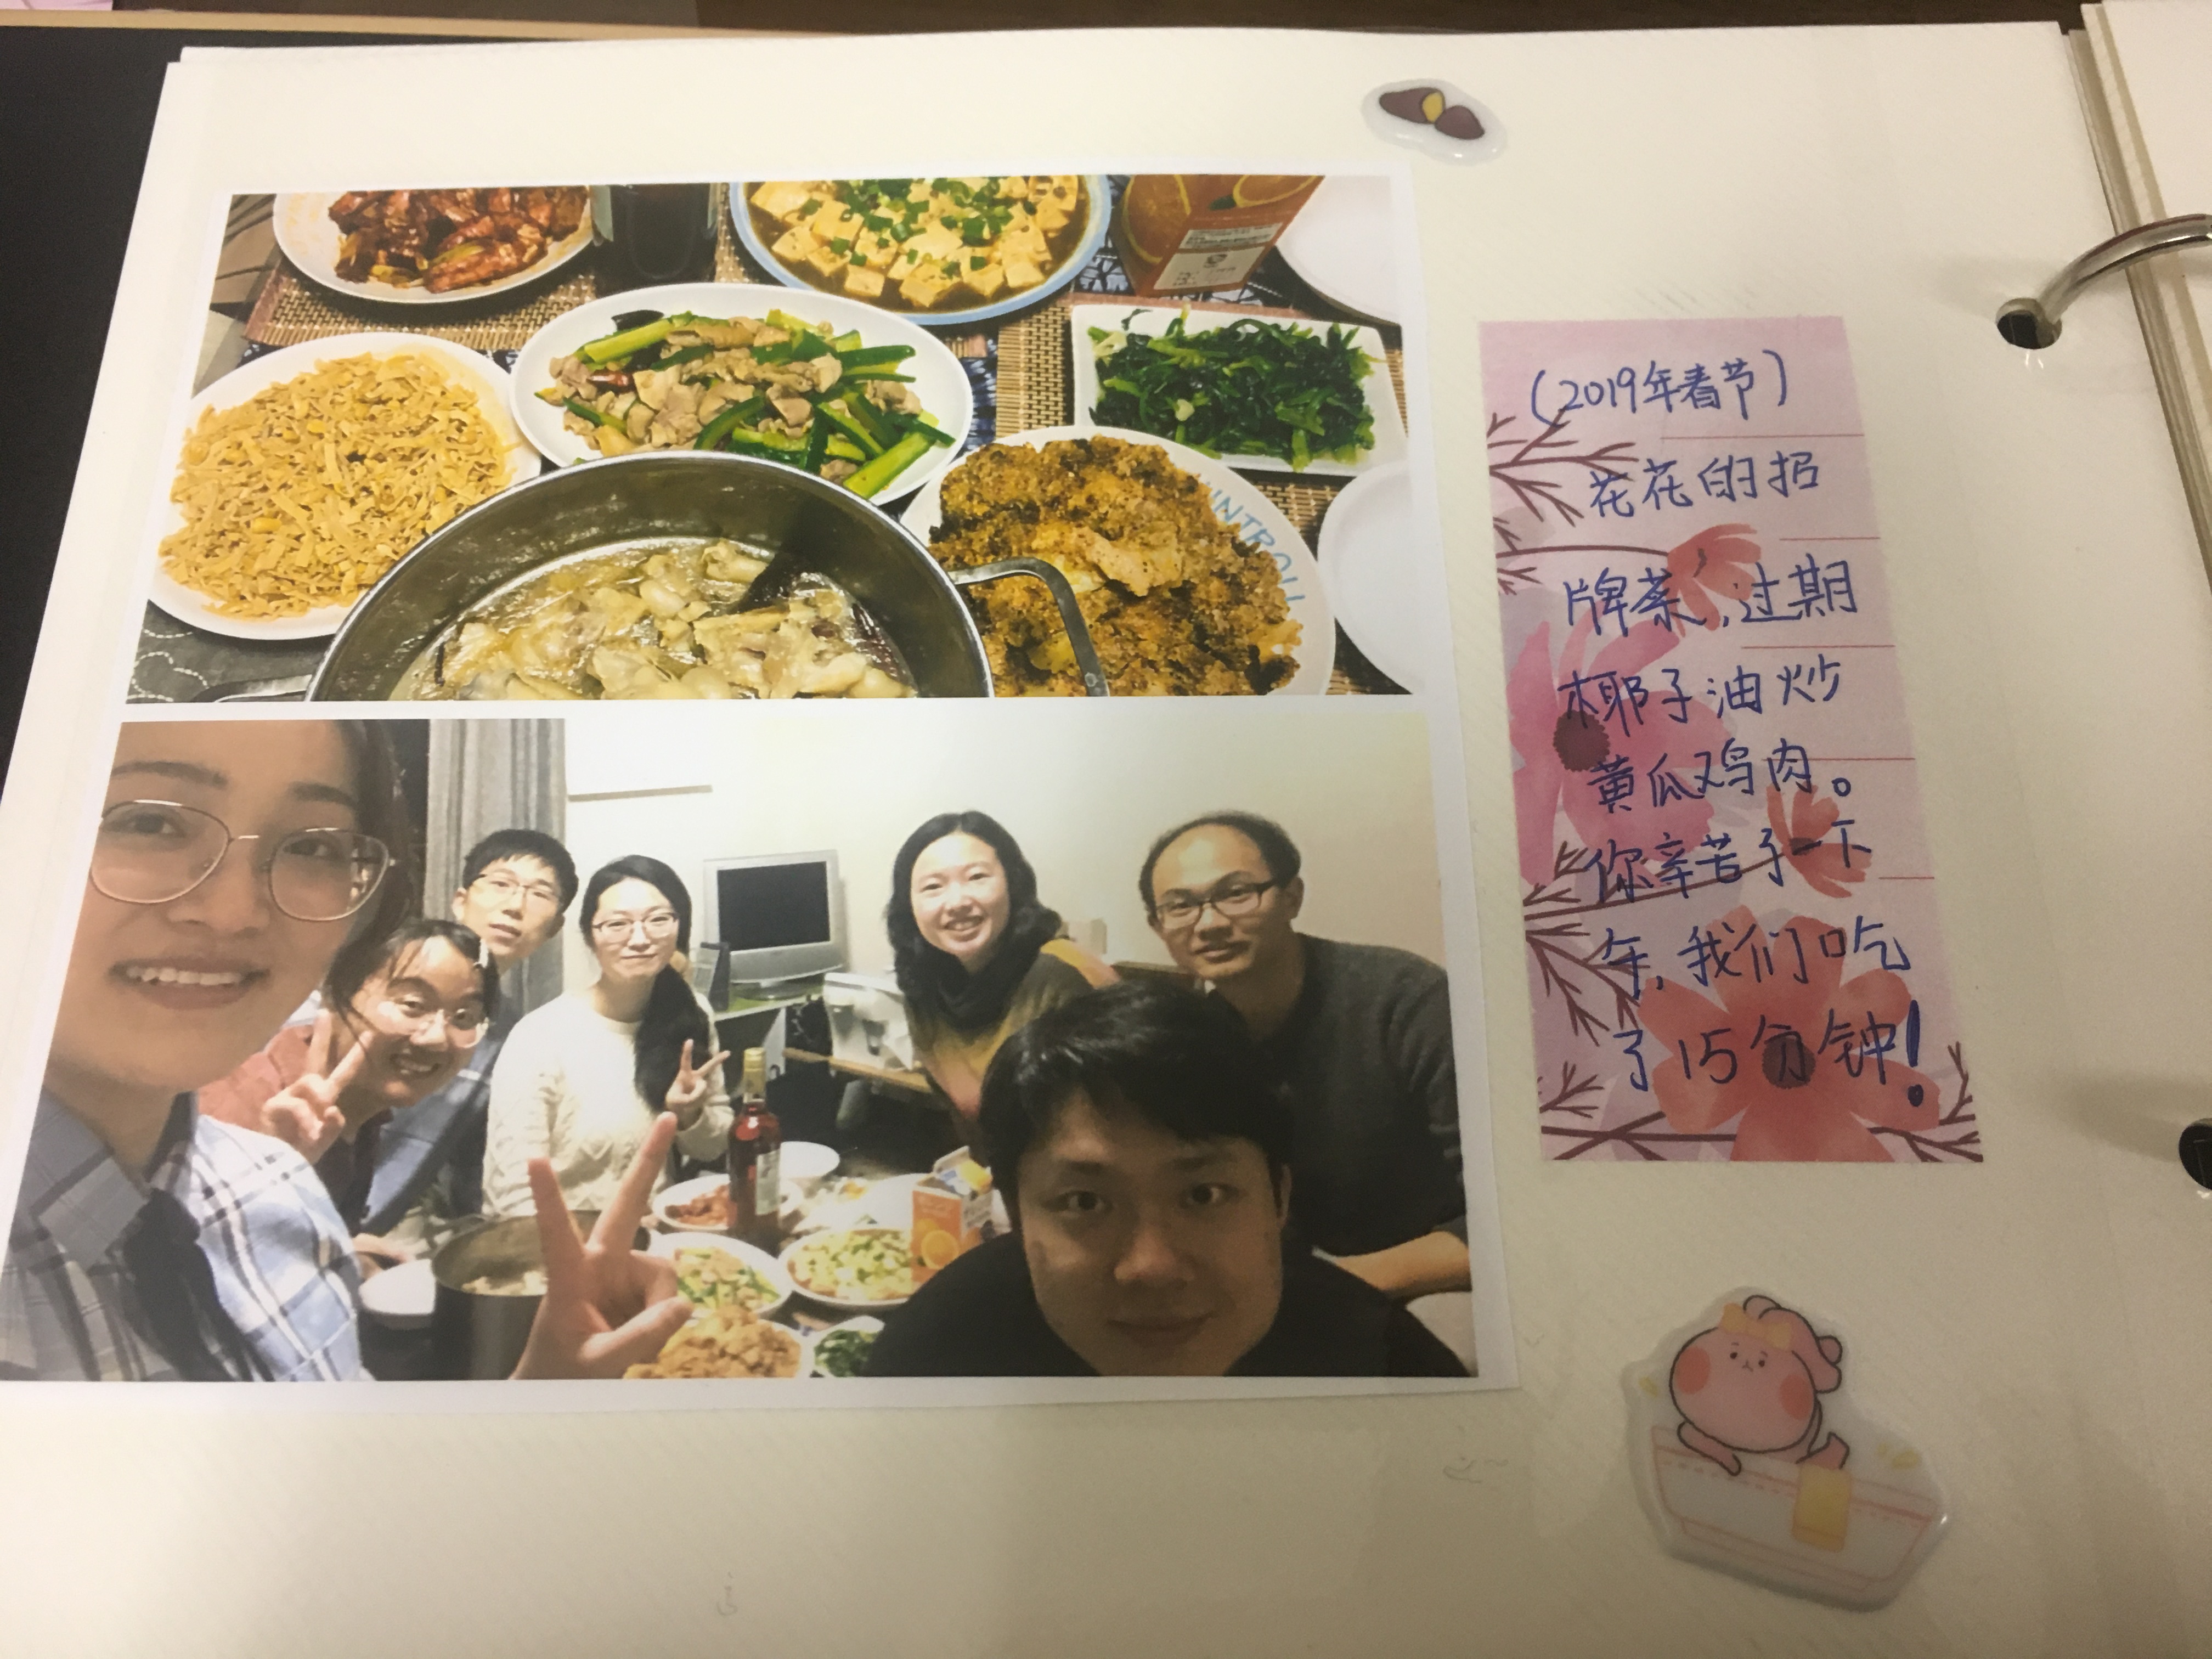 (2019年春节)
花花的招
牌菜,过期
椰子油炒
黄瓜鸡肉。
你辛苦了一下
午,我们吃
了15分钟!